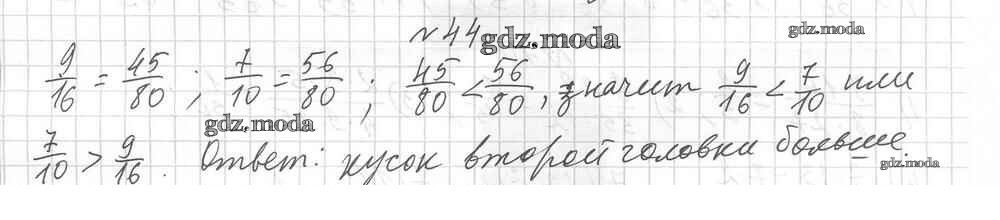 №44 gdz.moda gdz.moda
9/16 = 45/80 ; 7/10 = 56/80 ; 45/80 < 56/80, значит 9/16 < 7/10 или
gdz.moda
7/10 > 9/16. Ответ: кусок второй головки больше.
gdz.moda